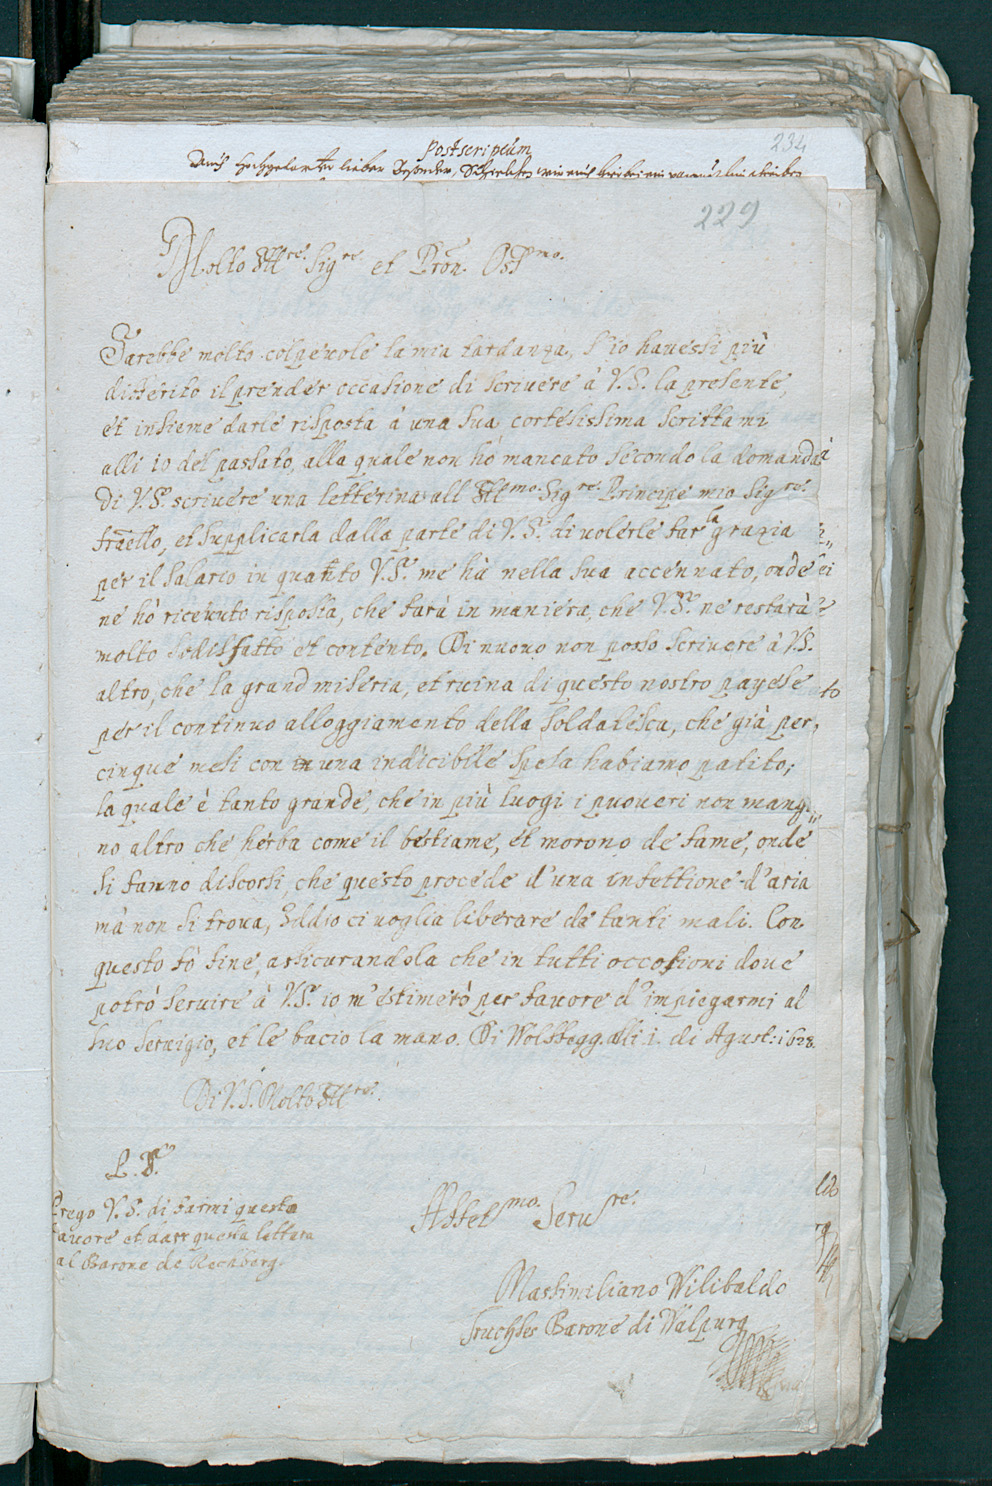 234
Postscriptum
229
Molto Ill.re Sig.re et Pron. Oss.mo.
Sarebbe molto colpevole la mia tardanza, s'io havessi più
differito il prender occasione di scriuere à V.S. la presente,
et insieme darle risposta à una sua cortesissima scrittami
alli 10 del passato, alla quale non hò mancato secondo la domanda
di V.S. scriuere una letterina all Ill.mo Sig.re Principe mio Sig.re
fratello, et supplicarla dalla parte di V.S. di uolerle far la grazia
per il salario in quanto V.S. me hà nella sua accennato, onde
ne hò riceuuto risposta, che sarà in maniera, che V.S. ne restarà
molto sodisfatto et contento. Di nuouo non posso scriuere à V.S.
altro, che la grand miseria, et ruina di questo nostro payese
per il continuo alloggiamento della soldatesca, che già per
cinque mesi con una indicibille spesa habiamo patito;
la quale è tanto grande, che in più luogi i puoueri non mangi
no altro che herba come il bestiame, et morono de fame, onde
si fanno discorsi, che questo procede d'una infettione d'aria
mà non si troua, Iddio ci uoglia liberare da tanti mali. Con
questo fò fine, assicurandola che in tutti occasioni doue
potrò seruire à V.S. io m'estimerò per fauore d'impiegarmi al
suo seruigio, et le bacio la mano. Di Wolffegg. alli 1. di Agust: 1628.
Di V.S. Molto Ill.re
P.S.
Prego V.S. di farmi questo
fauore et dare questa lettera
al Barone de Rechberg.
Affet.mo Seru.re
Massimiliano Wilibaldo
Truchses Barone di Walpurg